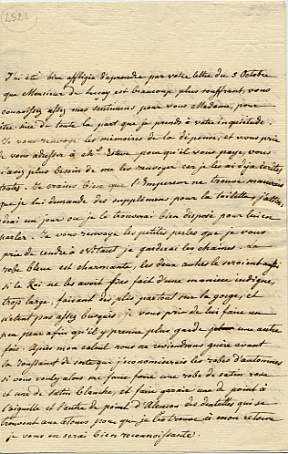 J'ai été bien affligée d'aprendre par votre lettre du 5 Octobre
que Monsieur de Luçay est beaucoup plus souffrant, vous
connoissez assez mes sentimens pour vous Madame, pour
être sûre de toute la part que je prends à votre inquiétude.
Je vous renvoye les mémoires de la dépense, et vous prie
de vous adresser à Mr. pour qu'il vous paye, vous
n'avez plus besoin de me les renvoyer car je les ai déja écrits
toutes. Je crains bien que l'Empereur ne trouve mauvais
que je lui demande des supplemens pour la toilette, j'atten-
drai un jour ou je le trouverai bien disposé pour lui en
parler. Je vous renvoye les petites perles que je vous
prie de rendre à Nitot je garderai les chaines. La
robe bleue est charmante, les deux autres le seraient aussi
si le Roi ne les avoit fait d'une maniere indigne,
trop large, faisant des plis partout sur la gorge, et
n'étant pas assez busquées, je vous prie de lui faire un
peu peur afin qu'il y prenne plus garde une autre
fois. Après mon calcul nous ne reviendrons guère avant
la Toussaint de sorte que j'économiserai les robes d'automnes
si vous voulez alors me faire faire une robe de satin rose
et une de satin blanche, et faire garnir une de point à
l'aiguille et l'autre de point d'Alençon des dentelles qui se
trouvent aux atours pour que je les trouve à mon retour
je vous en serai bien reconnoissante.